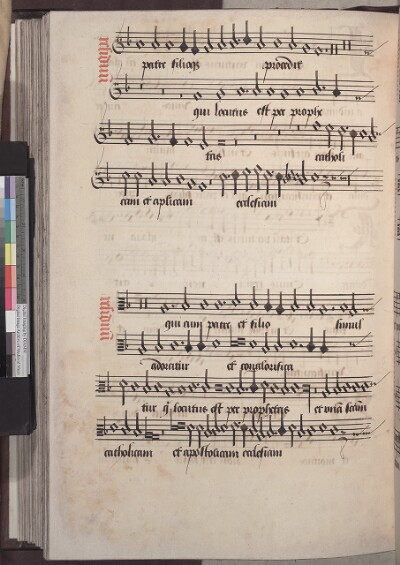 patre filioqz procedit
qui locutus est per prophe
tas catholi
cam et aplicam ecclesiam
qui cum patre et filio simul
adoratur et conglorifica
tur q locutus est per prophetas et unā scām
catholicam et apostolicam ecclesiam